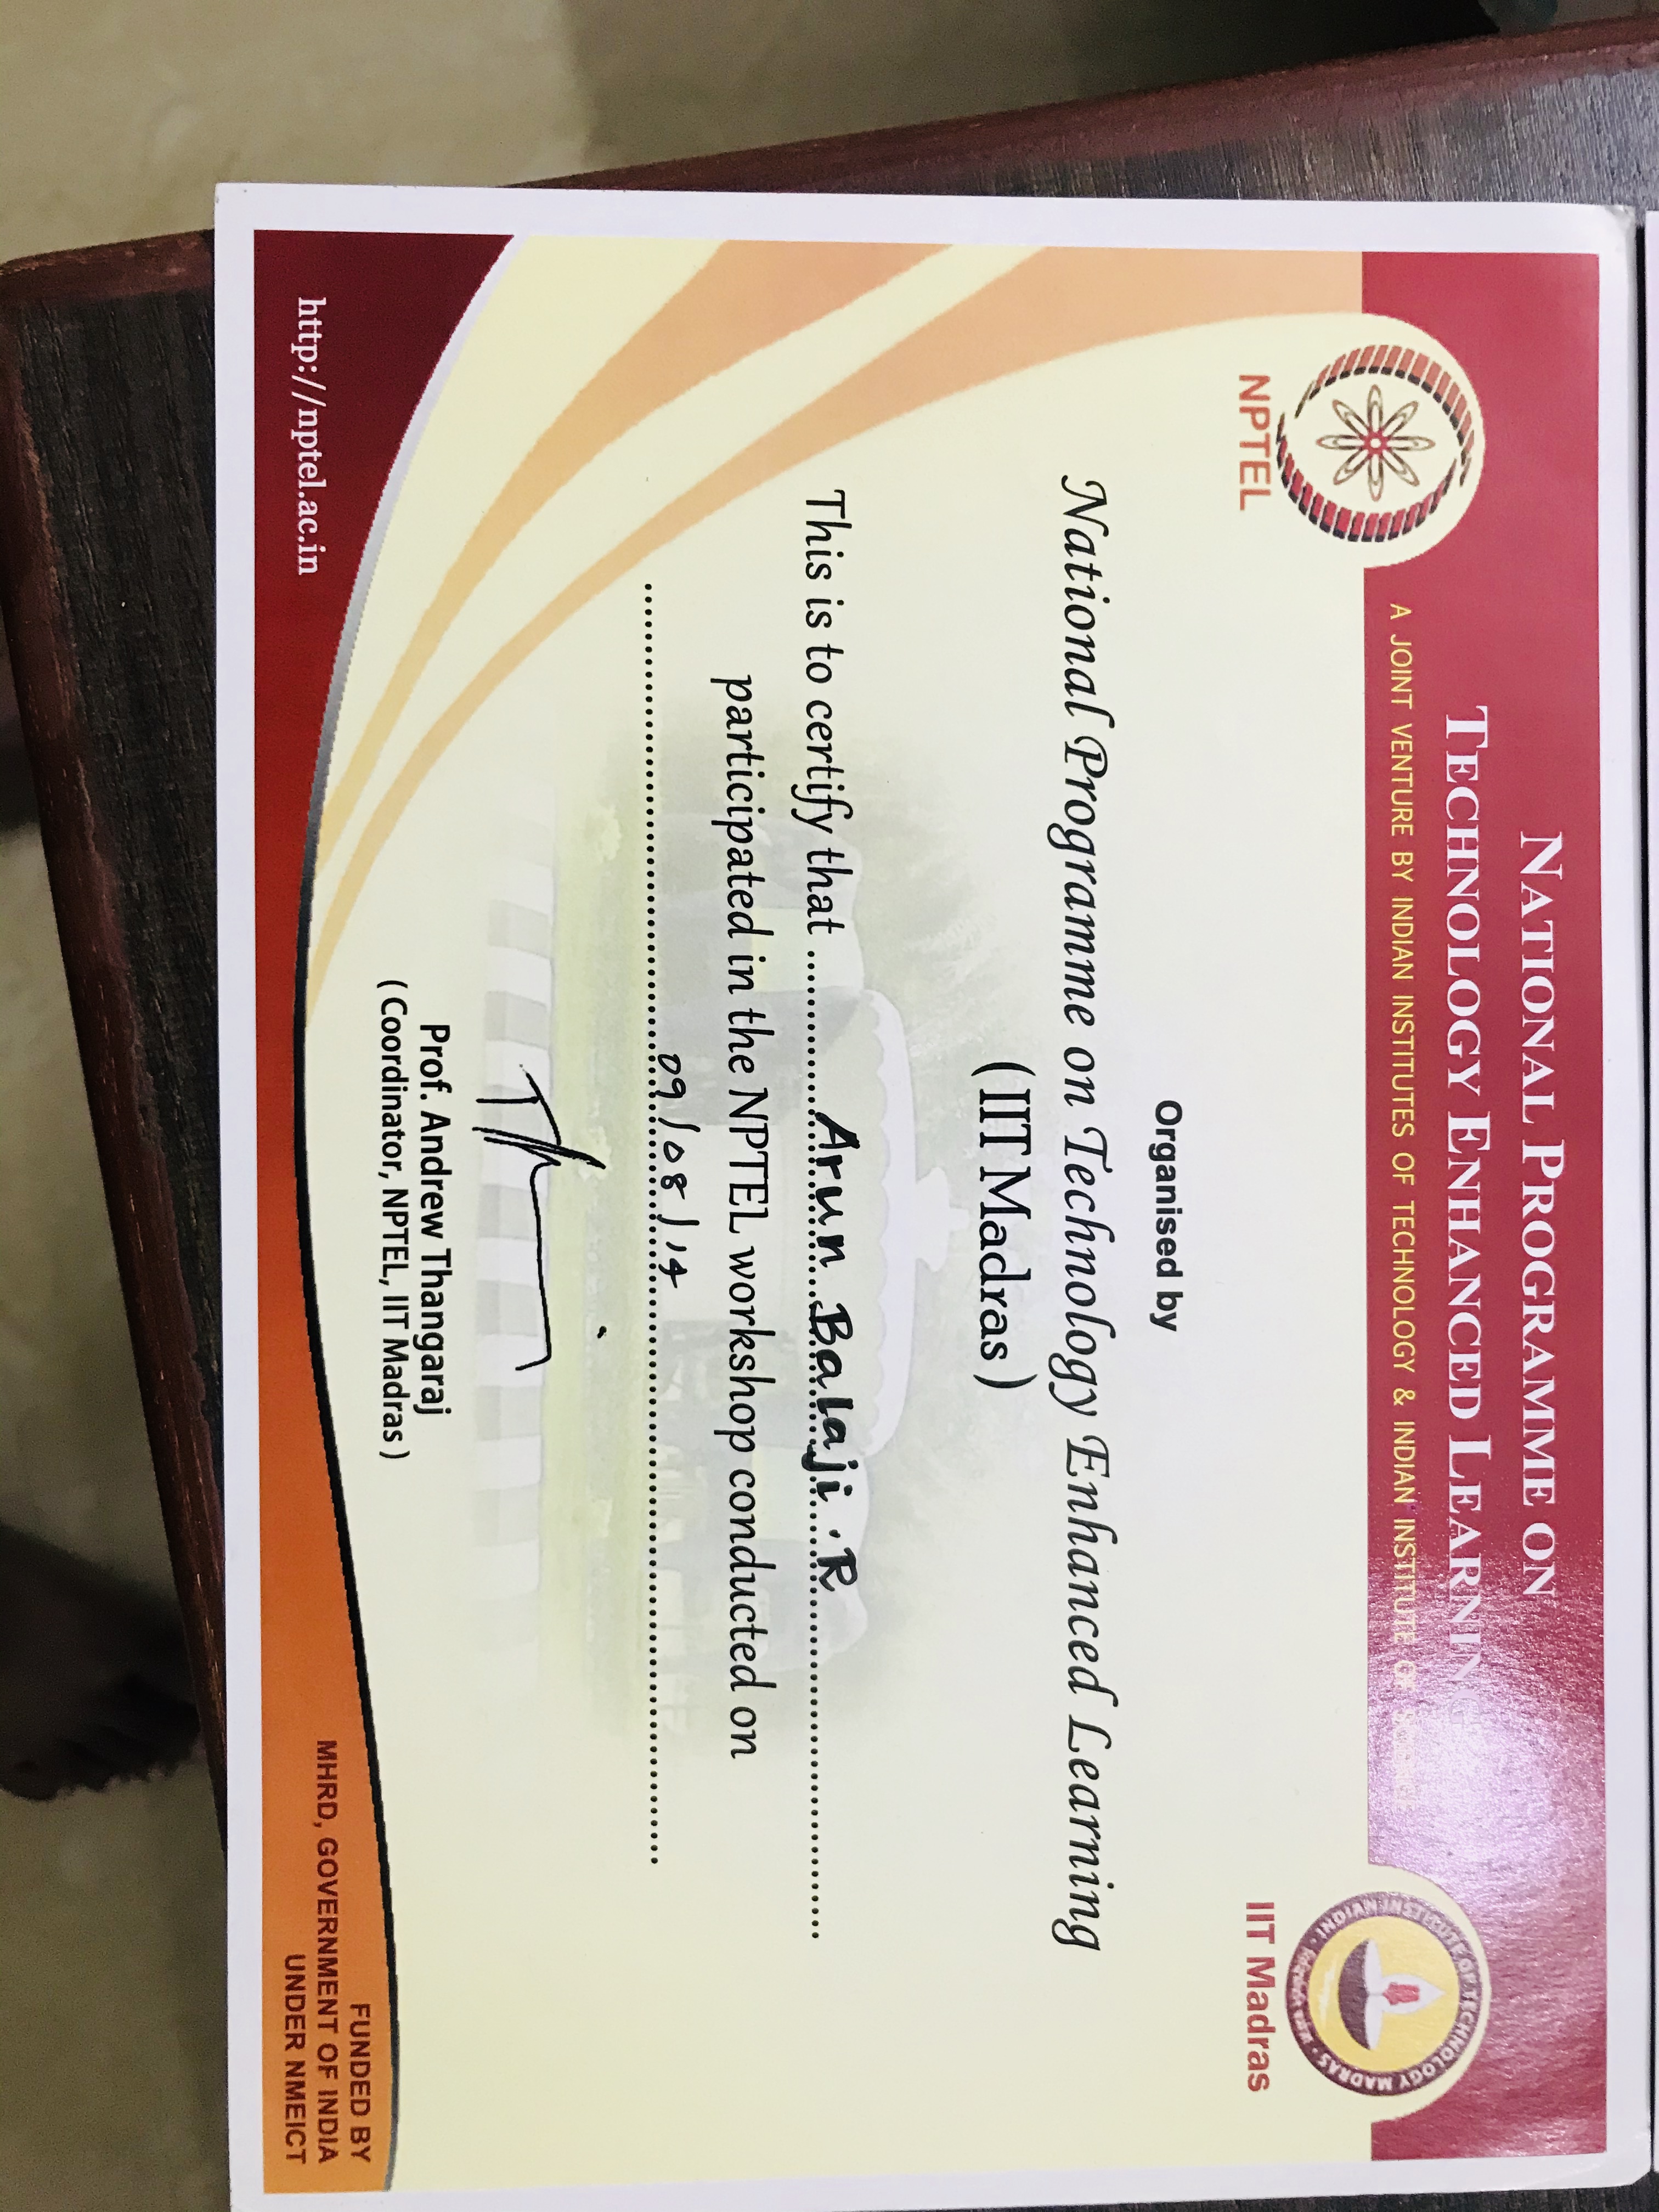 NATIONAL PROGRAMME ON
TECHNOLOGY ENHANCED LEARNING
A JOINT VENTURE BY INDIAN INSTITUTES OF TECHNOLOGY & INDIAN INSTITUTE OF SCIENCE
NPTEL
INDIAN INSTITUTE OF TECHNOLOGY MADRAS
IIT Madras
Organised by
National Programme on Technology Enhanced Learning
(IIT Madras)
This is to certify that ............ Arun Balaji. R ............
participated in the NPTEL workshop conducted on
............ 09/08/14 ............
Prof. Andrew Thangaraj
(Coordinator, NPTEL, IIT Madras)
http://nptel.ac.in
FUNDED BY
MHRD, GOVERNMENT OF INDIA
UNDER NMEICT